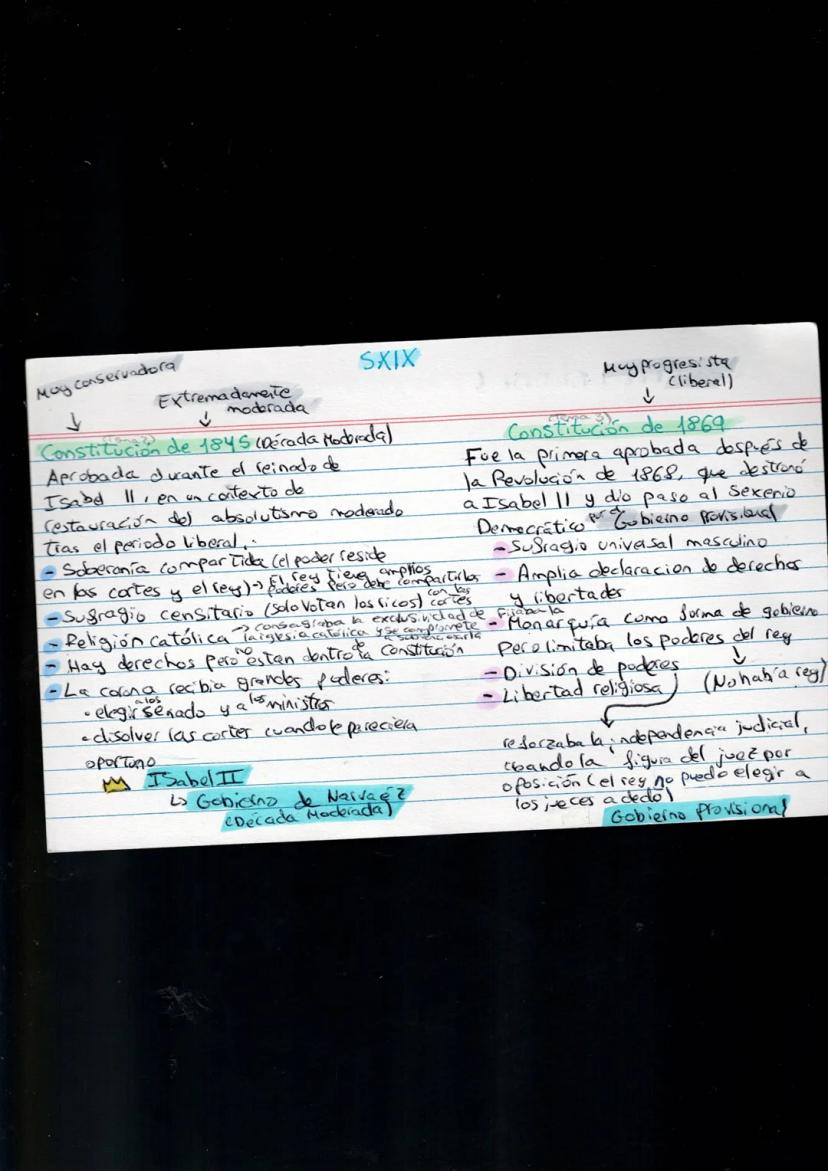 SXIX
Muy conservadora
Extremadamente
moderada
Constitución de 1845 (Década Moderada)
Aprobada durante el reinado de
Isabel II, en un contexto de
restauración del absolutismo moderado
tras el periodo liberal.:
- Soberanía compartida (el poder reside
en las cortes y el rey) → El rey tiene amplios
poderes pero debe compartirlos
con las
cortes
- Sufragio censitario (solo votan los ricos)
- Religión católica → consagraba la exclusividad de
la iglesia católica y se compromete
a
- Hay derechos pero no están dentro de la Constitución
- La corona recibia grandes poderes:
• elegir a los senado y a los ministros
• disolver las cortes cuando le pareciera
oportuno
Isabel II
↳ Gobierno de Narvaéz
(Década Moderada)
Muy progresista
(liberal)
(Tema 3)
Constitución de 1869
Fue la primera aprobada después de
la Revolución de 1868, que destronó
a Isabel II y dio paso al Sexenio
Democrático por el Gobierno Provisional
- Sufragio universal masculino
- Amplia declaracion de derechos
y libertades
Fijaba la
- Monarquía como forma de gobierno
pero limitaba los poderes del rey
- División de poderes
(No había rey)
- Libertad religiosa
reforzaba la independencia judicial,
creando la figura del juez por
oposición (el rey no puedo elegir a
los jueces a dedo)
Gobierno Provisional